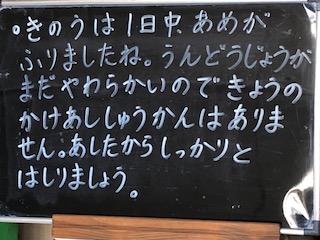 。きのうは1日中、あめが
ふりましたね。うんどうじょうが
まだやわらかいのできょうの
かけあししゅうかんはありま
せん。あしたからしっかりと
はしりましょう。